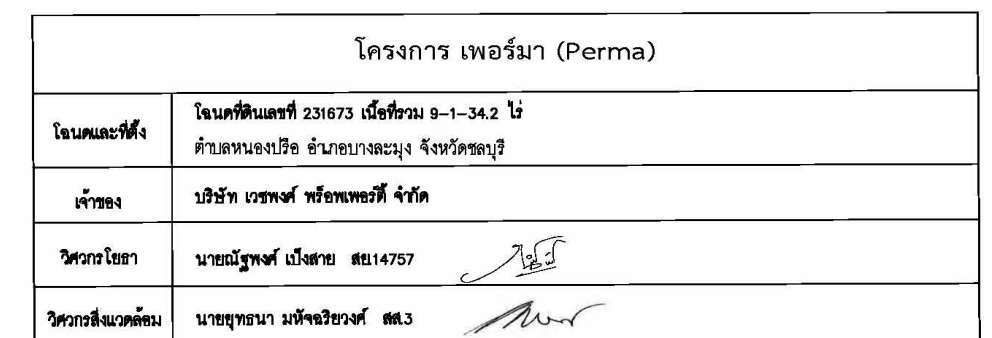 โครงการ เพอร์มา (Perma)
โฉนดและที่ตั้ง
โฉนดที่ดินเลขที่ 231673 เนื้อที่รวม 9-1-34.2 ไร่
ตำบลหนองปรือ อำเภอบางละมุง จังหวัดชลบุรี
เจ้าของ บริษัท เวชพงศ์ พร็อพเพอร์ตี้ จำกัด
วิศวกรโยธา นายณัฐพงศ์ เป็งสาย สย.14757
วิศวกรสิ่งแวดล้อม นายยุทธนา มหัจฉริยวงศ์ สส.3